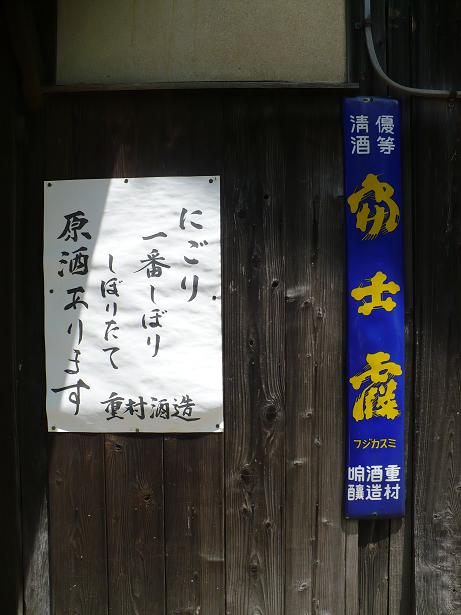 にごり
一番しぼり
しぼりたて
原酒あります
重村酒造
優等
清酒
富士霞
フジカスミ
重村
酒造
醸